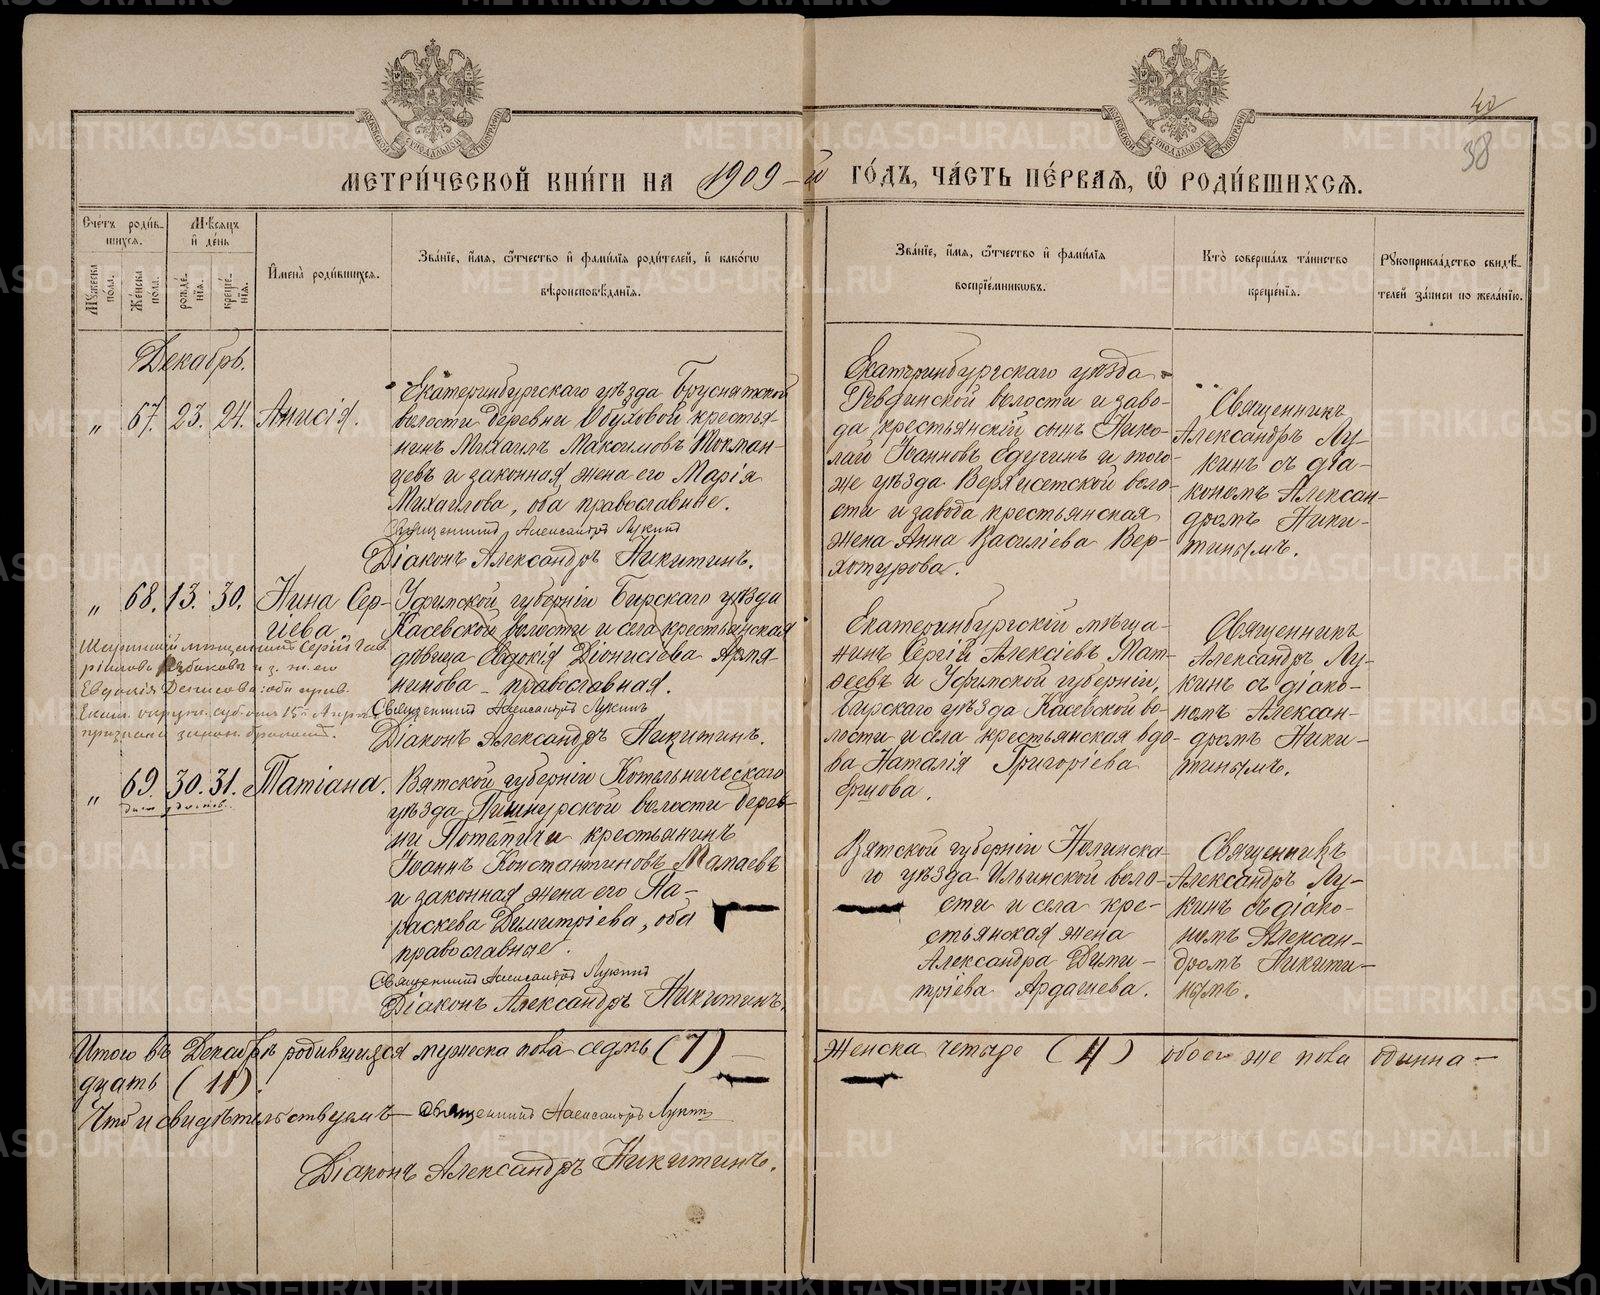 40
38
МЕТРИ́ЧЕСКОЙ КНИ́ГИ НА 1909-й ГО́ДЪ, ЧА́СТЬ ПЕ́РВАЯ, Ѡ҆ РОДИ́ВШИХСЯ.
Сче́тъ роди́в-
шихся.
Мѣ́сяцъ
и҆ де́нь
И҆мена̀ роди́вшихся.
Зва́нїе, и҆́мя, ѻ҆́тчество и҆ фами́лїя роди́телей, и҆ како́гѡ
вѣроисповѣ́данїя.
Зва́нїе, и҆́мя, ѻ҆́тчество и҆ фами́лїя
воспрїе́мникѡвъ.
Кто̀ соверша́лъ та́инство
креще́нїя.
Рꙋкоприкла́дство свидѣ́-
телей за́писи по жела́нїю.
Мꙋ́жеска по́ла.
Же́нска по́ла.
рожде́-
нїя.
креще́-
нїя.
Декабрь.
„ 67. 23. 24. Анисія.
Екатеринбургскаго уѣзда Бруснятской
волости деревни Обуховой крестья-
нинъ Михаилъ Максимовъ Токман-
цевъ и законная жена его Марія
Михаилова, оба православные.
Священникъ Александръ Лукинъ
Діаконъ Александръ Никитинъ.
Екатеринбургскаго уѣзда
Ревдинской волости и заво-
да крестьянскій сынъ Нико-
лай Іоанновъ и того-
же уѣзда Верхисетской воло-
сти и завода крестьянская
жена Анна Василіева Вер-
хотурова.
Священникъ
Александръ Лу-
кинъ съ діа-
кономъ Алексан-
дромъ Ники-
тинымъ.
„ 68. 13. 30. Нина Сер-
гіева
мѣщанинъ Сергій Гав
риловъ и з. ж. его
Евдокія Денисова: оба прав.
Екат. окруж. судомъ 15 Апр.
признана закон.
Уфимской губерніи Бирскаго уѣзда
Касевской волости и села крестьянская
дѣвица Евдокія Діонисіева Армя-
нинова - православная.
Священникъ Александръ Лукинъ
Діаконъ Александръ Никитинъ.
Екатеринбургскій мѣща-
нинъ Сергій Алексіевъ Мат-
веевъ и Уфимской губерніи,
Бирскаго уѣзда Касевской во-
лости и села крестьянская вдо-
ва Наталія Григоріева
Ершова.
Священникъ
Александръ Лу-
кинъ съ діако-
номъ Алексан-
дромъ Ники-
тинымъ.
„ 69. 30. 31. Татіана.
Вятской губерніи Котельническаго
уѣзда волости дерев-
ни крестьянинъ
Іоаннъ Константиновъ Мамаевъ
и законная жена его Па-
раскева Димитріева, оба
православные.
Священникъ Александръ Лукинъ
Діаконъ Александръ Никитинъ.
Вятской губерніи Нолинска-
го уѣзда Ильинской воло-
сти и села кре-
стьянская жена
Александра Дими-
тріева Ардашева.
Священникъ
Александръ Лу-
кинъ съ діако-
номъ Алексан-
дромъ Никити-
нымъ.
Итого въ Декабрѣ родившихся мужеска пола седмь (7) — женска четыре (4) обоего же пола одинна-
дцать (11).
Что и свидѣтельствуемъ - Священникъ Александръ Лукинъ
Діаконъ Александръ Никитинъ.
METRIKI.GASO-URAL.RU